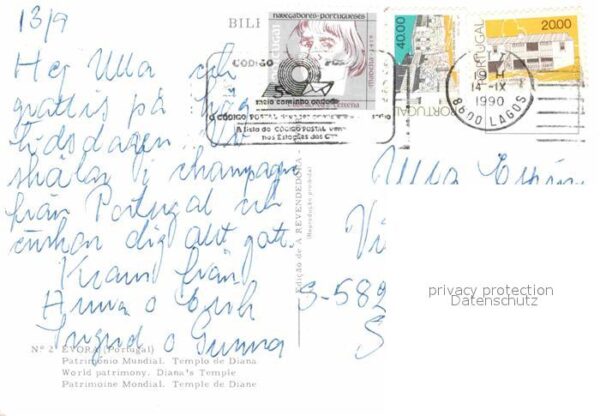 13/9
Hej Ulla och
grattis på
födelsdagen.
skålar i champagne
från Portugal och
önskar dig allt gott.
Kram från
Anna o Erik
Ingrid o Gunna
BILH
NAVEGADORES PORTUGUESES
CÓDIGO POSTAL
meio caminho andado
O CÓDIGO POSTAL
A lista do CÓDIGO POSTAL vem
nas Estações dos C
40.00
PORTUGAL
20.00
PORTUGAL
19 H
14-IX
1990
8600 LAGOS
Edição de A REVENDEDORA
(Reprodução proibida)
Ulla
S-582
S
privacy protection
Datenschutz
Nº 2 ÉVORA (Portugal)
Património Mundial. Templo de Diana
World patrimony. Diana's Temple
Patrimoine Mondial. Temple de Diane